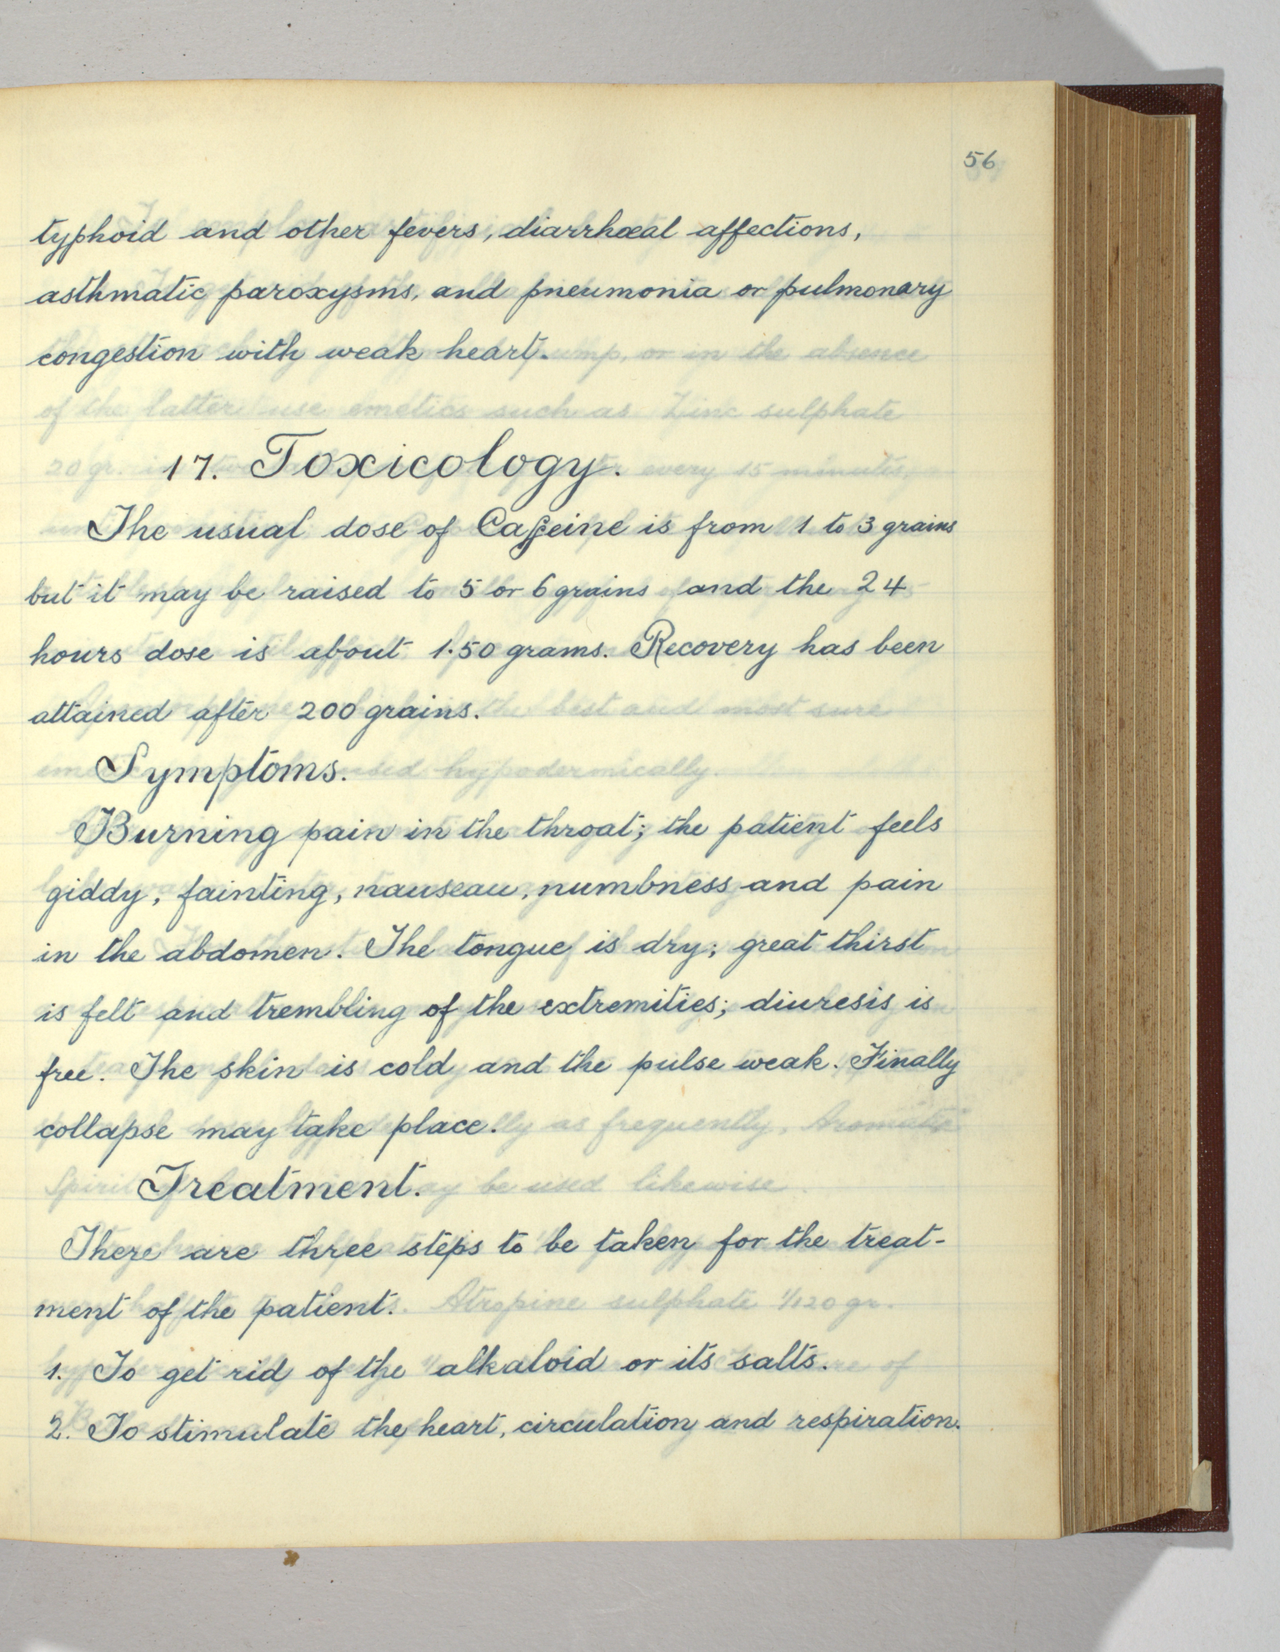 56
typhoid and other fevers, diarrhœal affections,
asthmatic paroxysms, and pneumonia or pulmonary
congestion with weak heart.
17. Toxicology.
The usual dose of Caffeine is from 1 to 3 grains
but it may be raised to 5 or 6 grains and the 24
hours dose is about 1.50 grams. Recovery has been
attained after 200 grains.
Symptoms.
Burning pain in the throat; the patient feels
giddy, fainting, nauseau, numbness and pain
in the abdomen. The tongue is dry; great thirst
is felt and trembling of the extremities; diuresis is
free. The skin is cold and the pulse weak. Finally
collapse may take place.
Treatment.
There are three steps to be taken for the treat-
ment of the patient.
1. To get rid of the alkaloid or its salts.
2. To stimulate the heart, circulation and respiration.